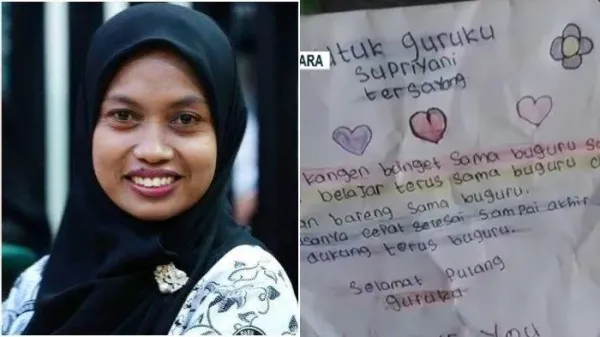 ARA
ntuk guruku
Supriyani
tersayang
kangen banget sama buguru
belajar terus sama buguru
an bareng sama buguru.
sanya cepat selesai sampai akhir
dukung terus buguru.
Selamat Pulang
guruku
You